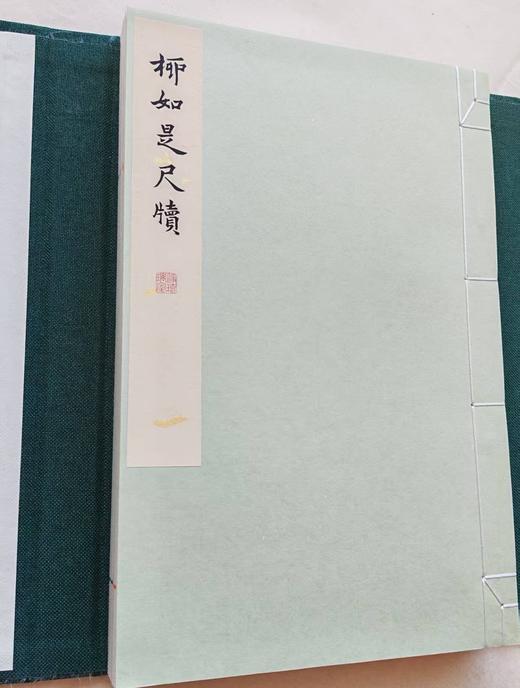 柳如是尺牘